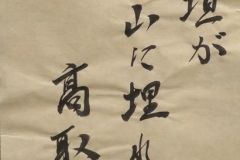 垣が
山に埋れ
高取